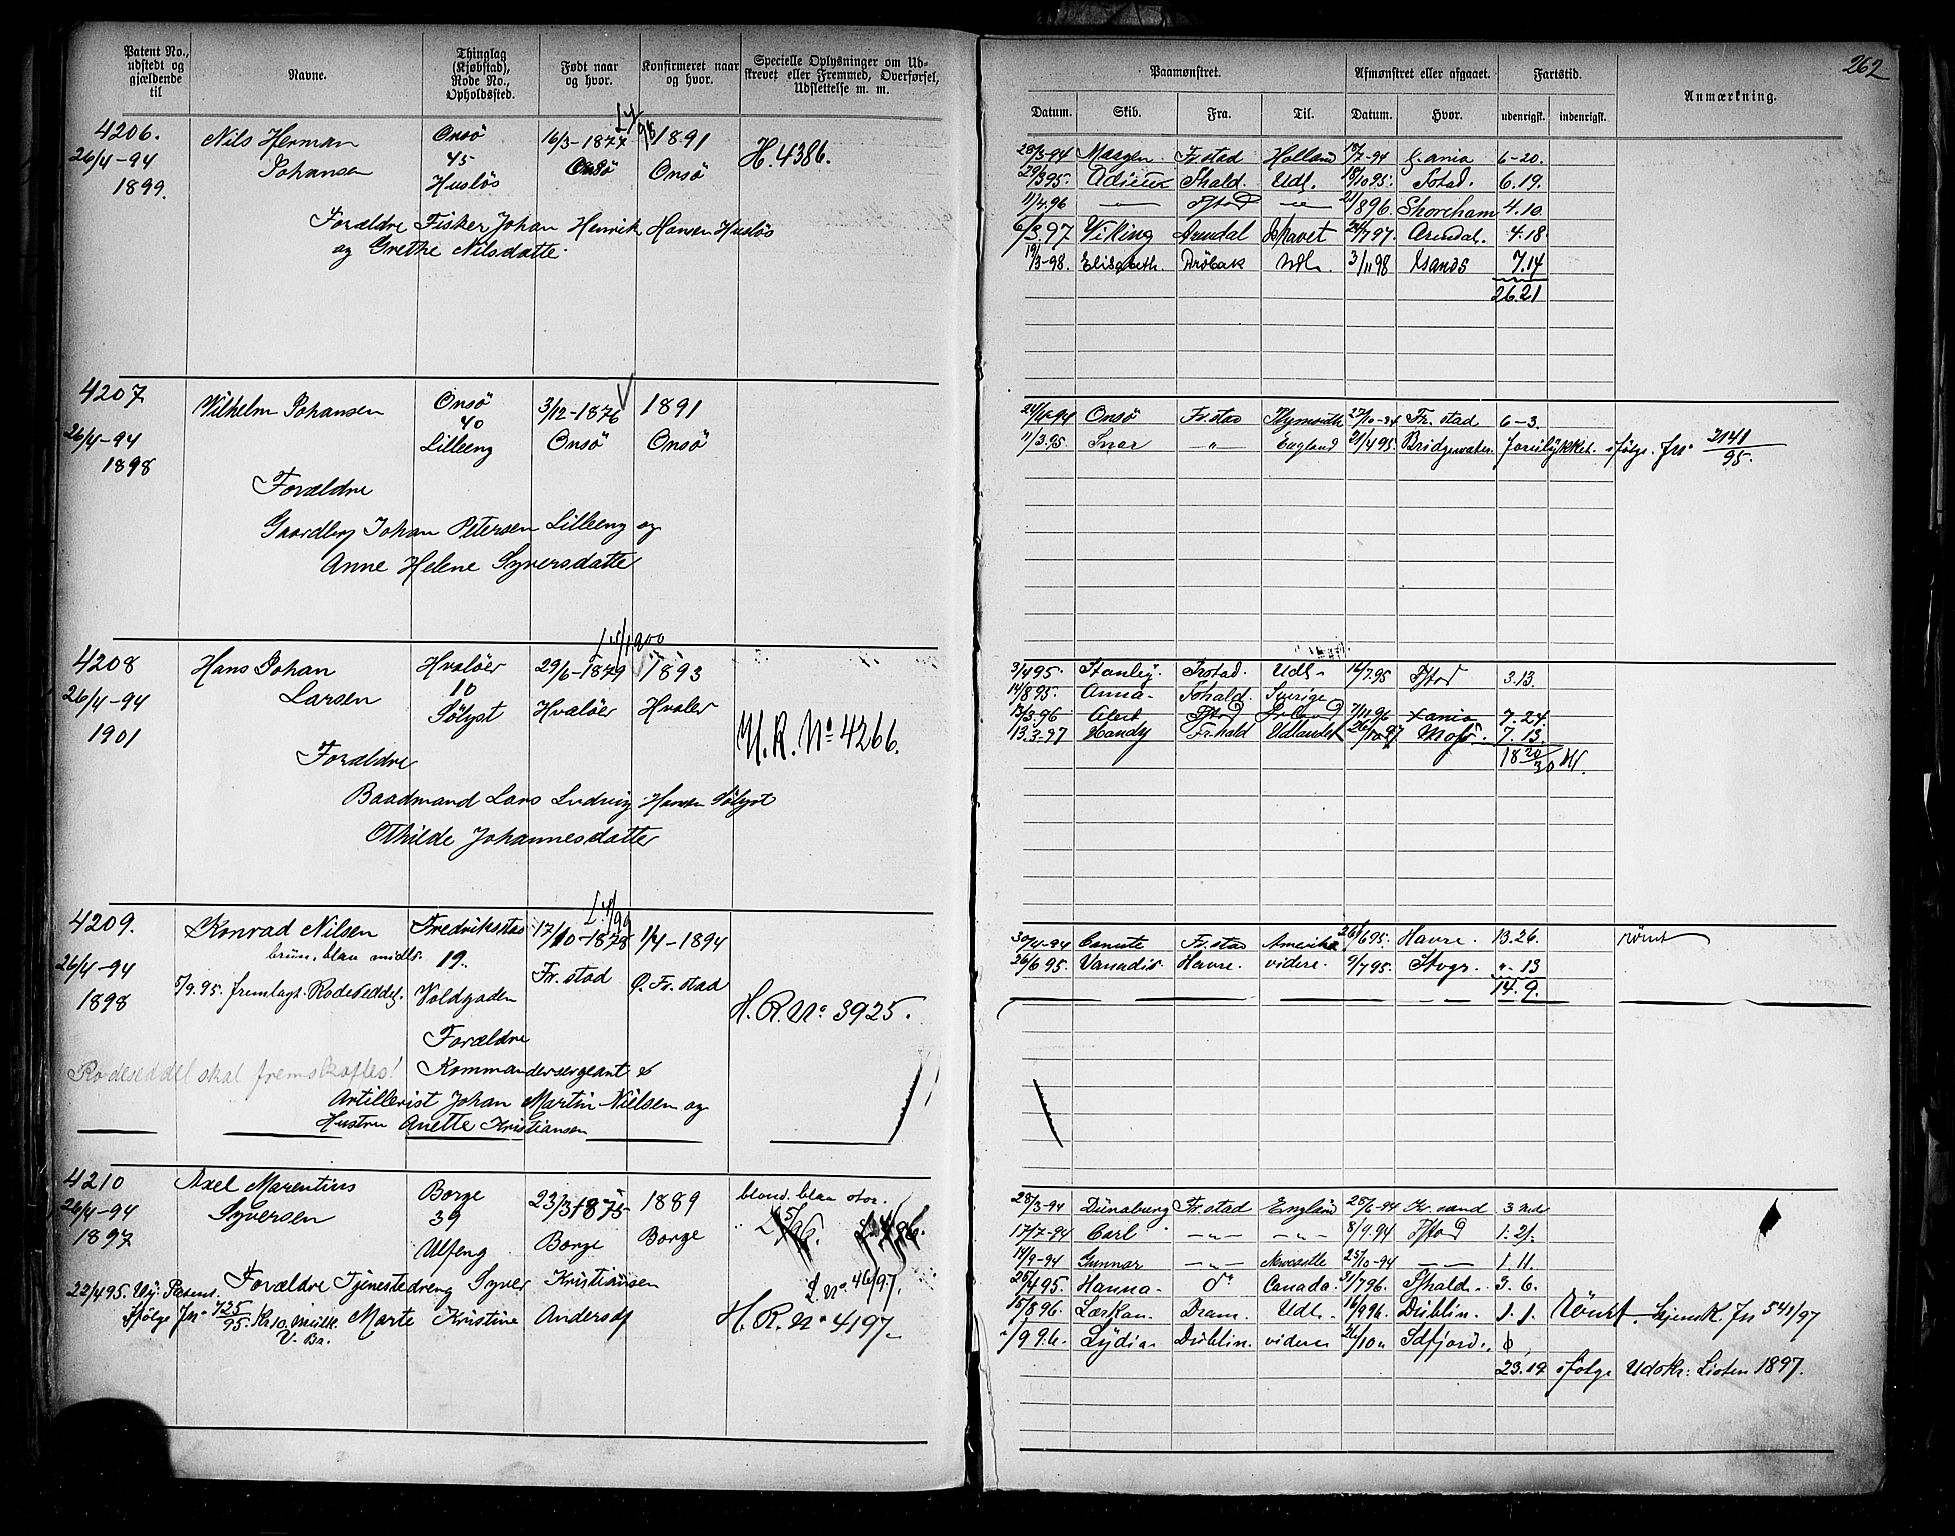 Patent No., udstedt og gjældende til
Navne.
Thinglag (Kjøbstad), Rode No., Opholdssted.
Født naar og hvor.
Konfirmeret naar og hvor.
Specielle Oplysninger om Udskrevet eller Fremmed, Overførsel, Udslettelse m. m.
4206.
26/4-94
1899.
Nils Herman
Johansen
Onsö
45
Huslös
16/3-1877
Onsö
1891
Onsö
H. 4386.
Forældre Fisker Johan Henrik Hansen Huslös
og Grethe Nilsdatte.
4207
26/4-94
1898
Vilhelm Johansen
Onsö
40
Lilleeng
3/12-1876
Onsö
1891
Onsö
Forældre
Gaardbrg Johan Petersen Lilleeng og
Anne Helene Syversdatte
4208
26/4-94
1901
Hans Johan
Larsen
Hvaløer
10
Sølyst
29/6-1879
Hvaløer
1893
Hvaler
H. R. No 4266.
Forældre
Baadmand Lars Ludvig Hansen Sølyst
Othilde Johannesdatter
4209.
26/4-94
1898
Konrad Nilsen
brun. blaa midls.
5/9.95. fremlagt Rodeseddel.
Fredrikstad
19.
Voldgaden
17/10-1878
Fr. stad
1/4-1894
Ø. Fr. stad
H. R. No 3925.
Forældre
Rodeseddel skal fremskaffes!
Kommandersergeant &
Artillerist Johan Martin Nilsen og
Hustru Anette Kristiansen
4210
26/4-94
1897
Axel Marentius
Syversen
Borge
39
Ulfeng
23/3-1875
Borge
1889
Borge
blond. blaa stor.
L. No 46/97.
H. R. No 4197.
22/4 95. Ny Patent
Ifölge Jn 725/95
Forældre Tjenestedreng Syver Kristiansen
Marte Kristine Andersdt
262
Paamønstret.
Afmønstret eller afgaaet.
Fartstid.
Anmærkning.
Datum. Skib. Fra. Til. Datum. Hvor. udenrigsk. indenrigsk.
28/3-94 Maagen Fr. stad Holland 18/7-94 6-20.
29/3 95. Adieux Fhald. Udl. 18/10 95. Fstad. 6.19.
11/4.96 Fstad 21/8 96. Shoreham 4.10
6/3.97 Viking Arendal Ishavet 24/7 97. Arendal. 4.18
19/3-98. Elisabeth. Dröbak Udl. 3/11 98 Xsands 7.14
26.21
24/4-94 Onsö Fr. stad Plymouth 27/10-94 Fr. stad 6-3.
11/3.95. Snar " England 21/4 95. Bridgewater. forulykket. ifölge Jn 2141/95.
3/4 95. Stanley Frstad. Udl. 16/7.95 Fstad 3.13.
14/8 95. Anna Fshald. Sverige
13/3.96 Alert Fstad 7/11 96 Xania 7.24.
13.3-97 Handy Fr. hald Udlandet 26/10-97 Moss. 7.13.
18 20/30
30/4-94 Canute Fr. stad Amerika 26/6 95. Havre. 13.26. römt
26/6 95. Vanadis Havre. videre. 9/7 95. Stvgr. ". 13
14.9.
28/3-94 Dünaburg Fr. stad England 25/6-94 Kr. sand
17/7-94 Carl -"- -"- 8/9.94 Fstad 1.21.
14/9-94 Gunnar Newcastle 25/10-94 1.11.
25/4 95. Hanna do Canada. 31/7 96. Fhald. 3.6.
15/8 96. Laskan Dram. Udl. 16/9 96. Dublin. 1.1. Römt. hjemk. Jn 541/97
/9 96. Lydia Dublin. videre 21/10 " Idfjord.
23.19 ifölge Udskr: Listen 1897.